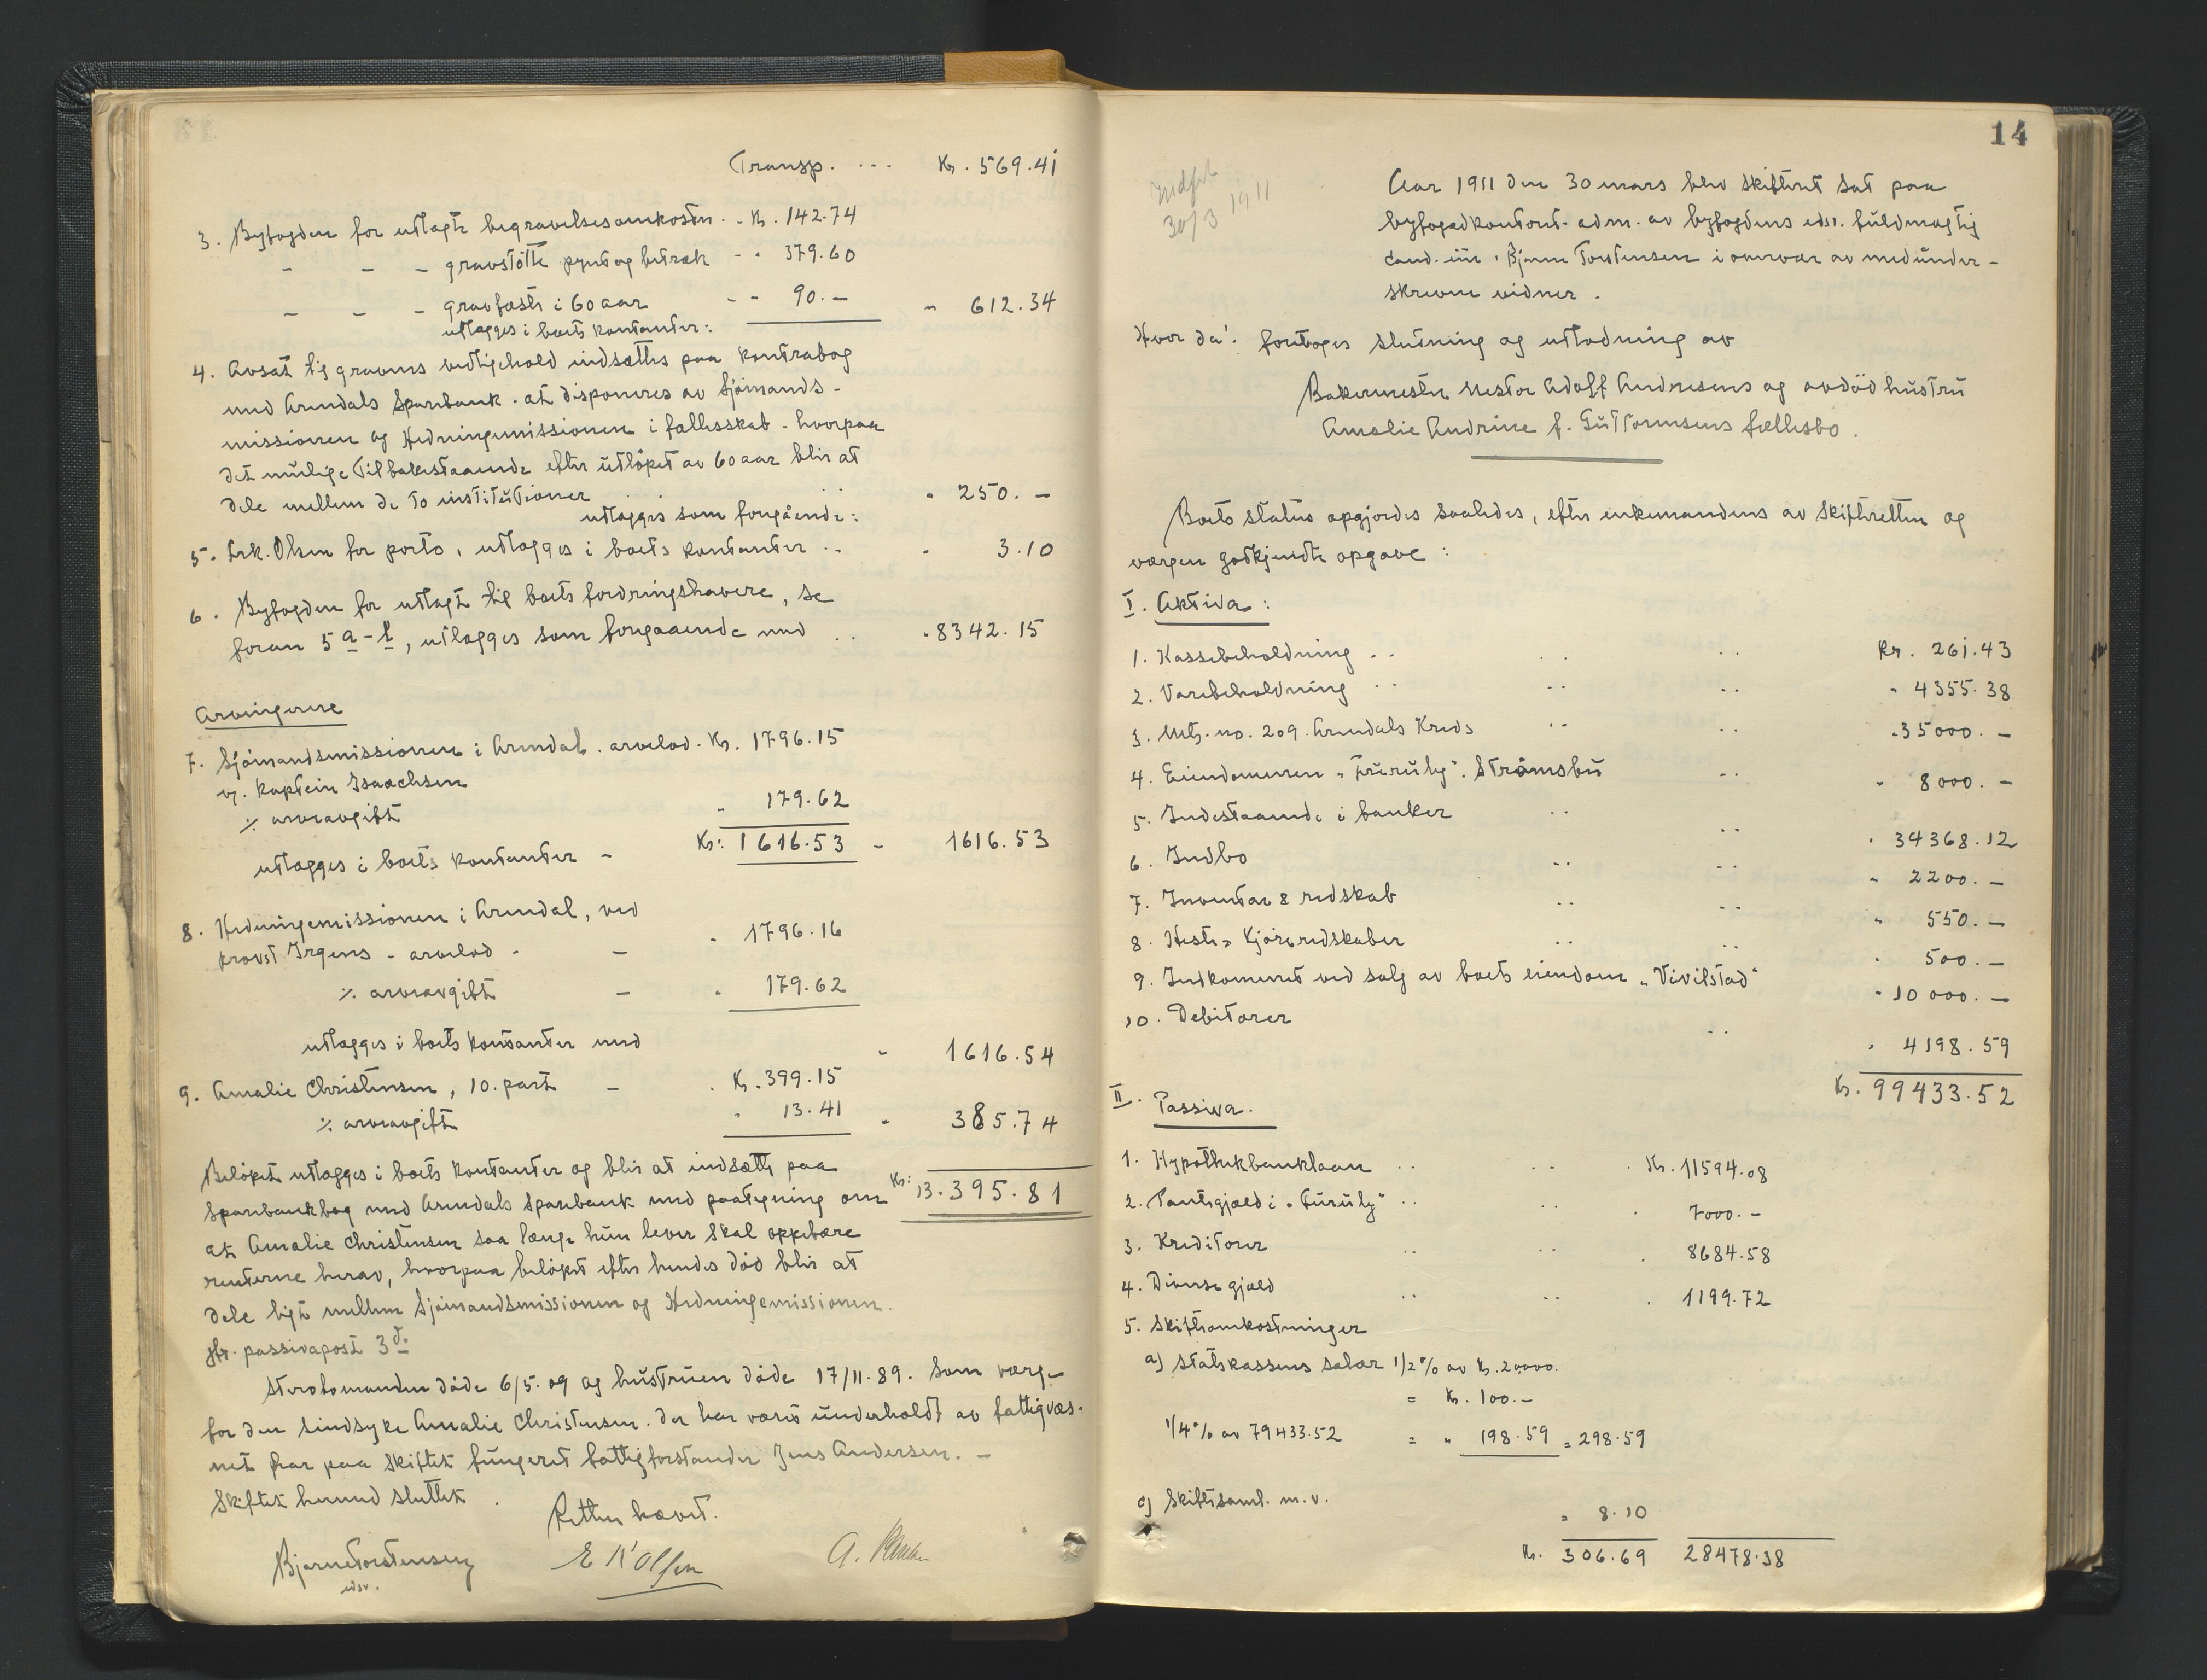 Transp. . . . Kr. 569.41
3. Byfogden for utlagte begravelsesomkostn. - Kr. 142.74
- - - gravstötte pynt og betræk - " 379.60
- - - gravfæste i 60 aar - - 90.- " 612.34
utlægges i boets kontanter:
4. Avsat til gravens vedlikehold indsættes paa kontrabog
med Arendals Sparebank. at disponeres av Sjömands-
missionen og Hedningemissionen i fællesskab - hvorpaa
det mulige tilbakestaaende efter utløpet av 60 aar blir at
dele mellem de to institutioner . . . . " 250. -
utlægges som foregående:
5. Frk. Olsen for porto, utlægges i boets kontanter . . " 3.10
6. Byfogden for utlagt til boets fordringshavere, se
foran 5 a - f, utlægges som foregaaende med . . " 8342.15
Arvingerne
7. Sjömandsmissionen i Arendal. arvelod. Kr. 1796.15
v. kaptein Isaachsen
% arveavgift - 179.62
utlægges i boets kontanter - Kr: 1616.53 - 1616.53
8. Hedningemissionen i Arendal, ved
provst Irgens - arvelod - - " 1796.16
% arveavgift - " 179.62
utlægges i boets kontanter med " 1616.54
9. Amalie Christensen, 10. part - . Kr. 399.15
% arveavgift " 13.41 " 385.74
Kr: 13.395.81
Beløpet utlægges i boets kontanter og blir at indsætte paa
sparebankbog med Arendals Sparebank med paategning om
at Amalie Christensen saa længe hun lever skal oppebære
renterne herav, hvorpaa beløpet efter hendes död blir at
dele likt mellem Sjömandsmissionen og Hedningemissionen.
jfr. passivapost 3 d.
Sterbomanden döde 6/5. 09 og hustruen döde 17/11. 89. Som værge
for den sindsyke Amalie Christensen. der har været underholdt av fattigvæs-
net har paa skiftet fungeret fattigforstander Jens Andersen. -
Skiftet hermed sluttet.
Retten hævet.
Bjarne Torstensen
edsv.
E K Olsen
14
Indført
30/3 1911
Aar 1911 den 30 mars blev skifteret sat paa
byfogedkontoret. adm. av byfogdens edsv. fuldmægtig
cand. jur. Bjarne Torstensen i overvær av medunder-
skrevne vidner.
Hvor da: foretoges slutning og utlodning av
Bakermester Nestor Adolf Andresens og avdöd hustru
Amalie Andrine f. Guttormsens fællesbo.
Boets status opgjordes saaledes, efter enkemandens av skifteretten og
værgen godkjendte opgave:
I. Aktiva:
1. Kassebeholdning . . . . . . Kr. 261.43
2. Varebeholdning . . . . . . " 4355.38
3. Mtr. no. 209. Arendals Kreds . . . . " 35000. -
4. Eiendommen "Furuly". Strömsbu . . " 8000. -
5. Indestaaende i banker . . . . " 34368.12
6. Indbo . . . . " 2200. -
7. Inventar & redskab . . . . " 550. -
8. Hest & Kjöreredskaber . . . . " 500. -
9. Indkommet ved salg av boets eiendom "Vivilstad" " 10000. -
10. Debitorer . . " 4198.59
Kr. 99433.52
II. Passiva.
1. Hypothekbanklaan . . . . . Kr. 11594.08
2. Pantegjæld i "Furuly" . . . . . 7000. -
3. Kreditorer . . . . . 8684.58
4. Diverse gjæld . . . . . 1199.72
5. Skifteomkostninger
a) Statskassens salær 1/2 % av Kr. 20000.
= Kr. 100. -
1/4 % av 79433.52 = " 198.59 = 298.59
c) Skiftesaml. m. v. " 8.10
Kr. 306.69 28478.38